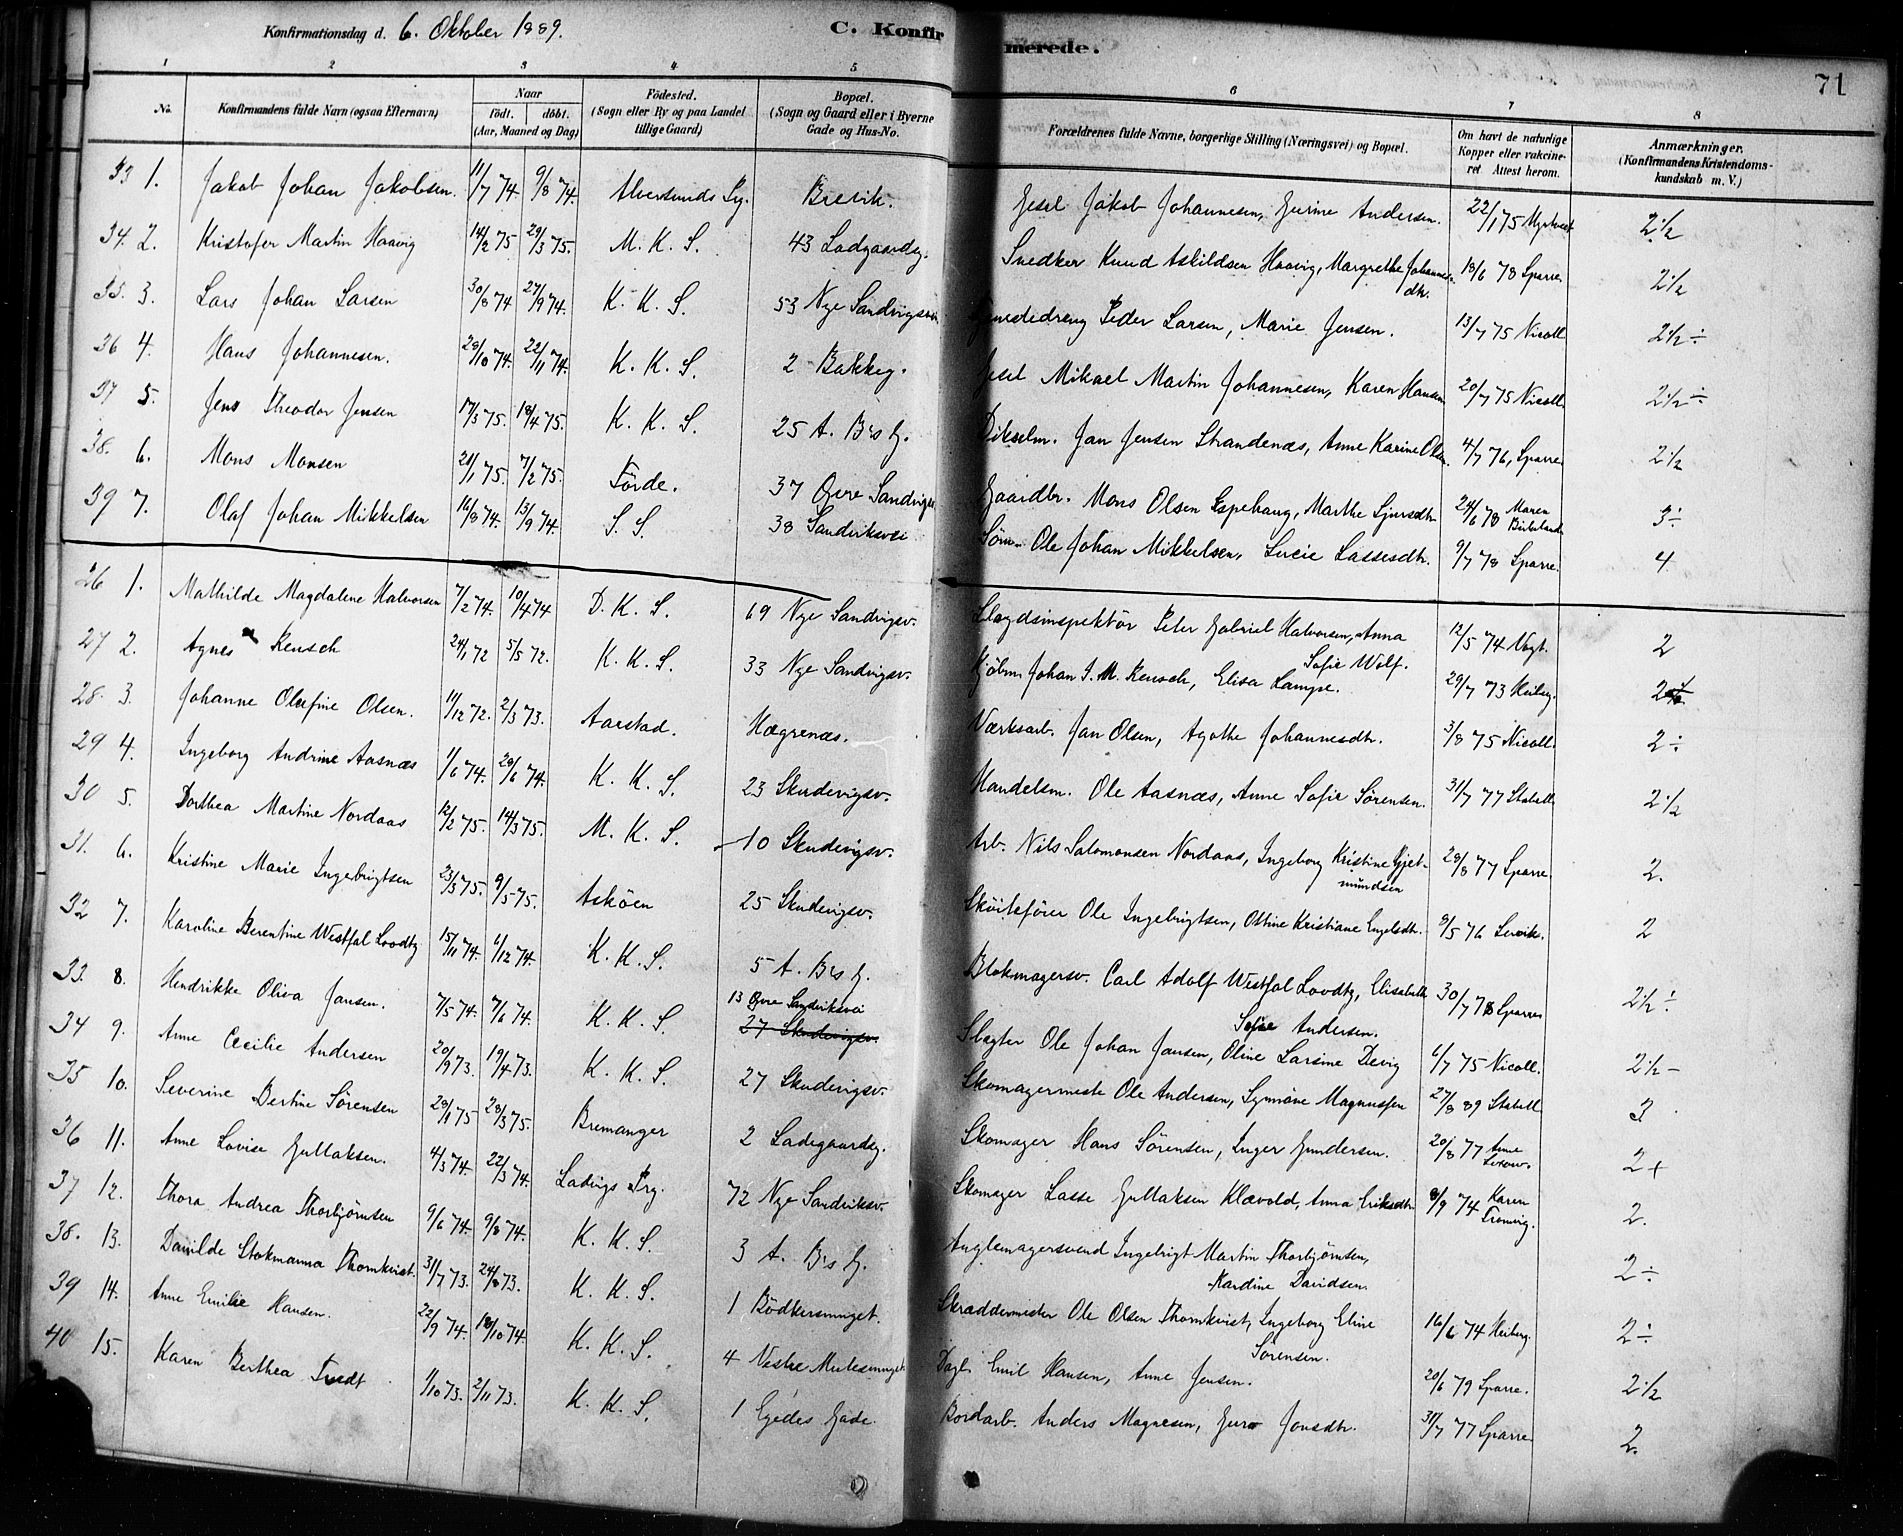 Konfirmationsdag d. 6. Oktober 1889.
C. Konfirmerede.
71
1 2 3 4 5 6 7 8
No.
Konfirmandens fulde Navn (ogsaa Efternavn)
Naar
födt. döbt.
(Aar, Maaned og Dag)
Födested.
(Sogn eller By og paa Landet
tillige Gaard)
Bopæl.
(Sogn og Gaard eller i Byerne
Gade og Hus-No.
Forældrenes fulde Navne, borgerlige Stilling (Næringsvei) og Bopæl.
Om havt de naturlige
Kopper eller vakcine-
ret Attest herom.
Anmærkninger.
(Konfirmandens Kristendoms-
kundskab m. V.)
33 1. Jakob Johan Jakobsen. 11/7 74. 9/8 74. Alversunds Pg. Brevik. Gesel Jakob Johannesen, Gurine Andersen. 22/1 75 2 1/2
34. 2. Kristofer Martin Haavig 14/2 75. 29/3 75. M. K. S. 43 Ladgaardsg. Snedker Knud Askildsen Haavig, Margrethe Johannes-
dtr. 18/6 78 Sparre 2 1/2
35. 3. Lars Johan Larsen 30/8 74 27/9 74. K. K. S. 53 Nye Sandvigsvei Peder Larsen, Marie Jensen. 13/7 75 Nicoll 2 1/2 ÷
36 4. Hans Johannesen. 28/10 74. 22/11 74. K. K. S. 2 Bakkeg. Gesel Mikael Martin Johannesen, Karen Hansen 20/7 75 Nicoll 2 1/2 ÷
37 5. Jens Theodor Jensen 17/3 75. 18/4 75. K. K. S. 25 A. B's G. Jan Jensen Strandenæs, Anne Karine Olsen. 4/7 76, Sparre 2 1/2
38. 6. Mons Monsen 21/1 75. 7/2 75. Förde. 37 Øvre Sandvigsv. Gaardbr. Mons Olsen Espehaug, Marthe Sjursdtr 24/6 78 Maren
Birkeland 3 ÷
39 7. Olaf Johan Mikkelsen 16/8 74. 13/9 74. S. S. 38 Sandviksvei Söm. Ole Johan Mikkelsen, Lucie Lassesdtr. 9/7 78 Sparre. 4
26 1. Mathilde Magdalene Halvorsen 7/2 74. 10/4 74 D. K. S. 69 Nye Sandvigsv. Slagdsinspektör Peter Gabriel Halvorsen, Anna
Sofie Wolf. 12/5 74 Vogt. 2
27 2. Agnes Reusch 24/1 72 5/5 72. K. K. S. 33 Nye Sandvigsv. Kjöbm. Johan J. M. Reusch, Elisa Lampe. 29/7 73 Heiberg. 2
28. 3. Johanne Olufine Olsen. 11/12 72. 2/3 73. Aarstad. Hægrenæs. Værksarb. Jan Olsen, Agathe Johannesdtr. 3/8 75 Nicoll. 2 ÷
29 4. Ingeborg Andrine Aasnæs 1/6 74. 28/6 74. K. K. S. 23 Skudevigsv. Handelsm. Ole Aasnæs, Anne Sofie Sörensen. 31/7 77 Stabell 2 1/2
30 5. Dorthea Martine Nordaas 12/2 75. 14/3 75. M. K. S. 10 Skudevigsv. Arb. Nils Salomonsen Nordaas, Ingeborg Kristine Gjert-
mundsen 28/8 77 Sparre. 2.
31. 6. Kristine Marie Ingebrigtsen 23/3 75. 9/5 75. Asköen 25 Skudevigsv. Sköiteförer Ole Ingebrigtsen, Ottine Kristiane Engelsdtr. 9/5 76 2
32 7. Karoline Berentine Westfal Loodtz 15/11 74. 6/12 74. K. K. S. 5 A. B's G. Blokmagersv. Carl Adolf Westfal Loodtz, Elisabeth
Sofie Andersen. 30/7 78 Sparre 2 1/2 ÷
33. 8. Hendrikke Oliva Jansen. 7/5 74. 7/6 74. K. K. S. 13 Øvre Sandviksvei
27 Skudevigsv. Slagter Ole Johan Jansen, Oline Larsine Devig 6/7 75 Nicoll. 2 1/2 -
34 9. Anne Cecilie Andersen 20/9 73. 19/4 73. K. K. S. 27 Skudevigsv. Skomagermester Ole Andersen, Synnöve Magnussen 27/8 89 Stabell 3
35 10. Severine Bertine Sörensen 28/1 75 28/3 75. Bremanger 2 Ladegaardsg. Skomager Hans Sörensen, Inger Gundersen. 20/8 77 Anne 2 +
36 11. Anne Lovise Gullaksen. 4/3 74. 22/3 74. Ladvigs Prg. 72 Nye Sandviksv. Skomager Lasse Gullaksen Klævold, Anna Eriksdtr 8/9 74 Karen
Tronvig. 2.
37 12. Thora Andrea Thorbjørnsen 9/6 74. 9/8 74. K. K. S. 3 A. B's G. Anglemagersvend Ingebrigt Martin Thorbjørnsen,
Nardine Davidsen. 2 ÷
38. 13. Davilde Stokmanna Thornkvist. 31/7 73. 24/8 73. K. K. S. 1 Bödkersmuget. Skræddermester Ole Olsen Thornkvist, Ingeborg Eline
Sörensen. 16/6 74 Heiberg. 2 ÷
39 14. Anne Emilie Hansen. 22/9 74. 18/10 74. K. K. S. 4 Nedre Mulesmuget. Dagl. Emil Hansen, Anne Jensen. 20/6 79 Sparre. 2 1/2
40 15. Karen Berthea Tredt 1/10 73. 2/11 73. K. K. S. 1 Egedes Gade. Bordarb. Anders Magnesen, Guro Jonsdtr. 31/7 77 Sparre 2.